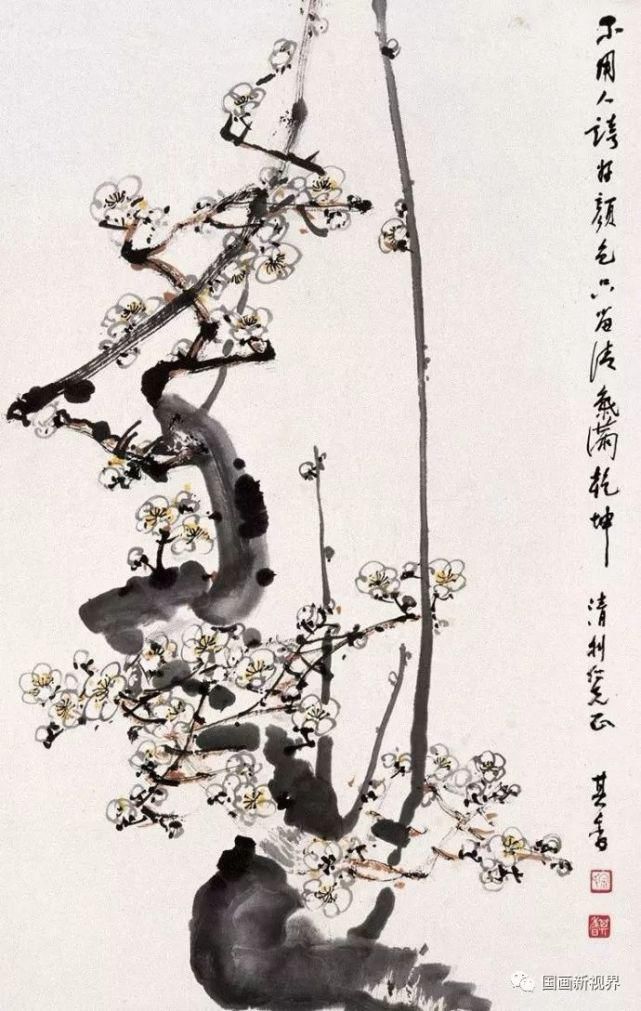 不用人誇好顏色只留清氣滿乾坤
清利仁兄正
其香
国画新视界